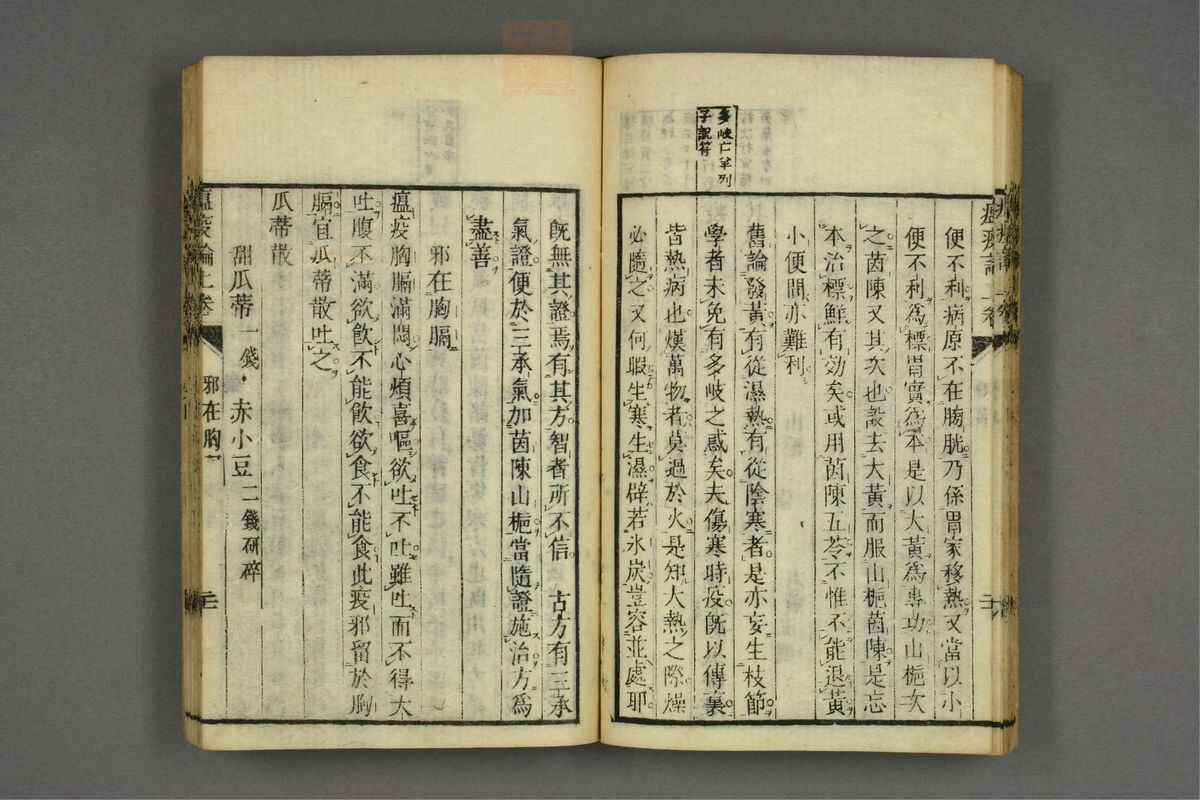 多岐亡羊列
子説符
便不利病原不在膀胱乃係胃家移熱又當以小
便不利為標胃實為本是以大黃為專功山梔次
之茵陳又其次也設去大黃而服山梔茵陳是忘
本治標鮮有効矣或用茵陳五苓不惟不能退黃
小便間亦難利
舊論發黃有從濕熱有從陰寒者是亦妄生枝節
學者未免有多岐之惑矣夫傷寒時疫既以傳裏
皆熱病也熯萬物者莫過於火是知大熱之際燥
必隨之又何暇生寒生濕辟若氷炭豈容並處耶
既無其證焉有其方智者所不信 古方有三承
氣證便於三承氣加茵陳山梔當隨證施治方為
盡善
邪在胸膈
瘟疫胸膈滿悶心煩喜嘔欲吐不吐雖吐而不得大
吐腹不滿欲飲不能飲欲食不能食此疫邪留於胸
膈宜瓜蒂散吐之
瓜蒂散
甜瓜蒂一錢 赤小豆二錢研碎
瘟疫論上卷 邪在胸